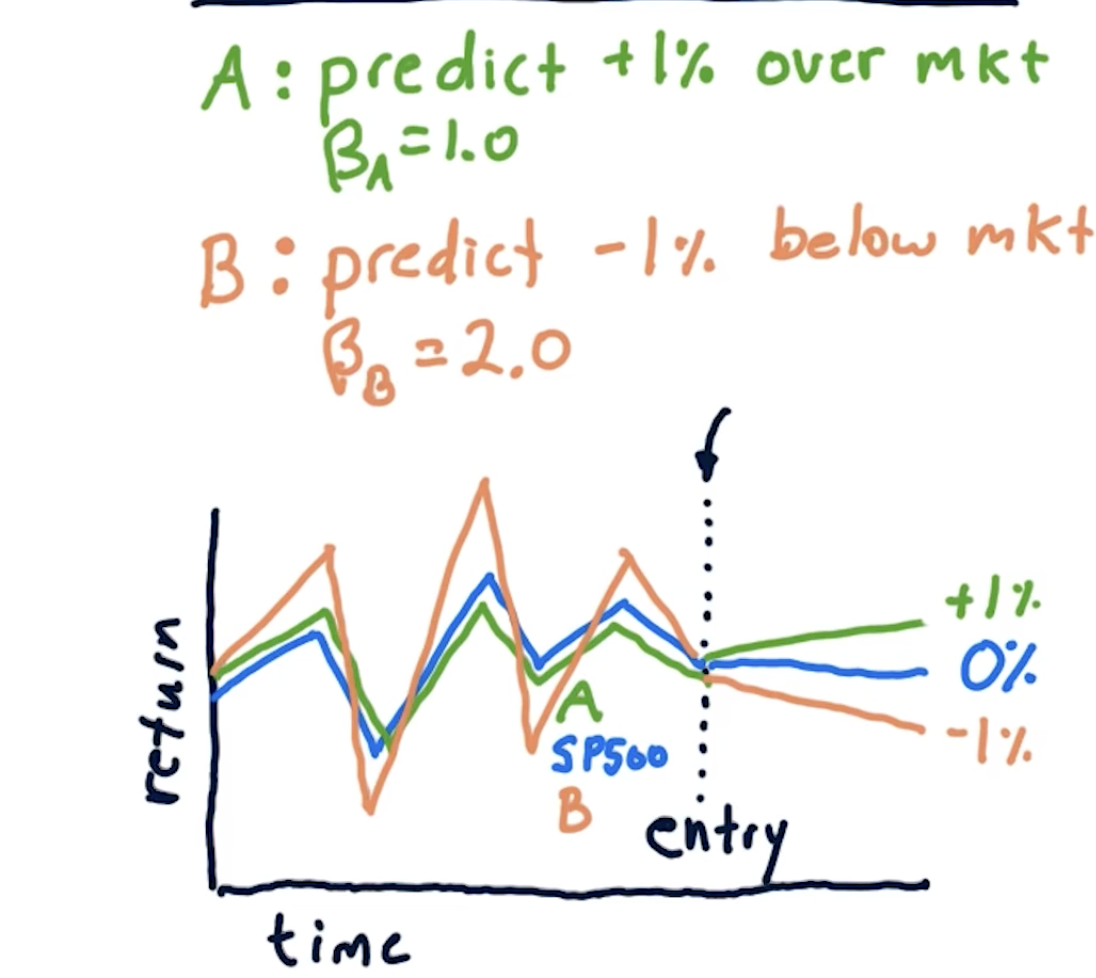 A: predict +1% over mkt
βA=1.0
B: predict -1% below mkt
βB=2.0
+1%
0%
-1%
return
A
SP500
B
entry
time